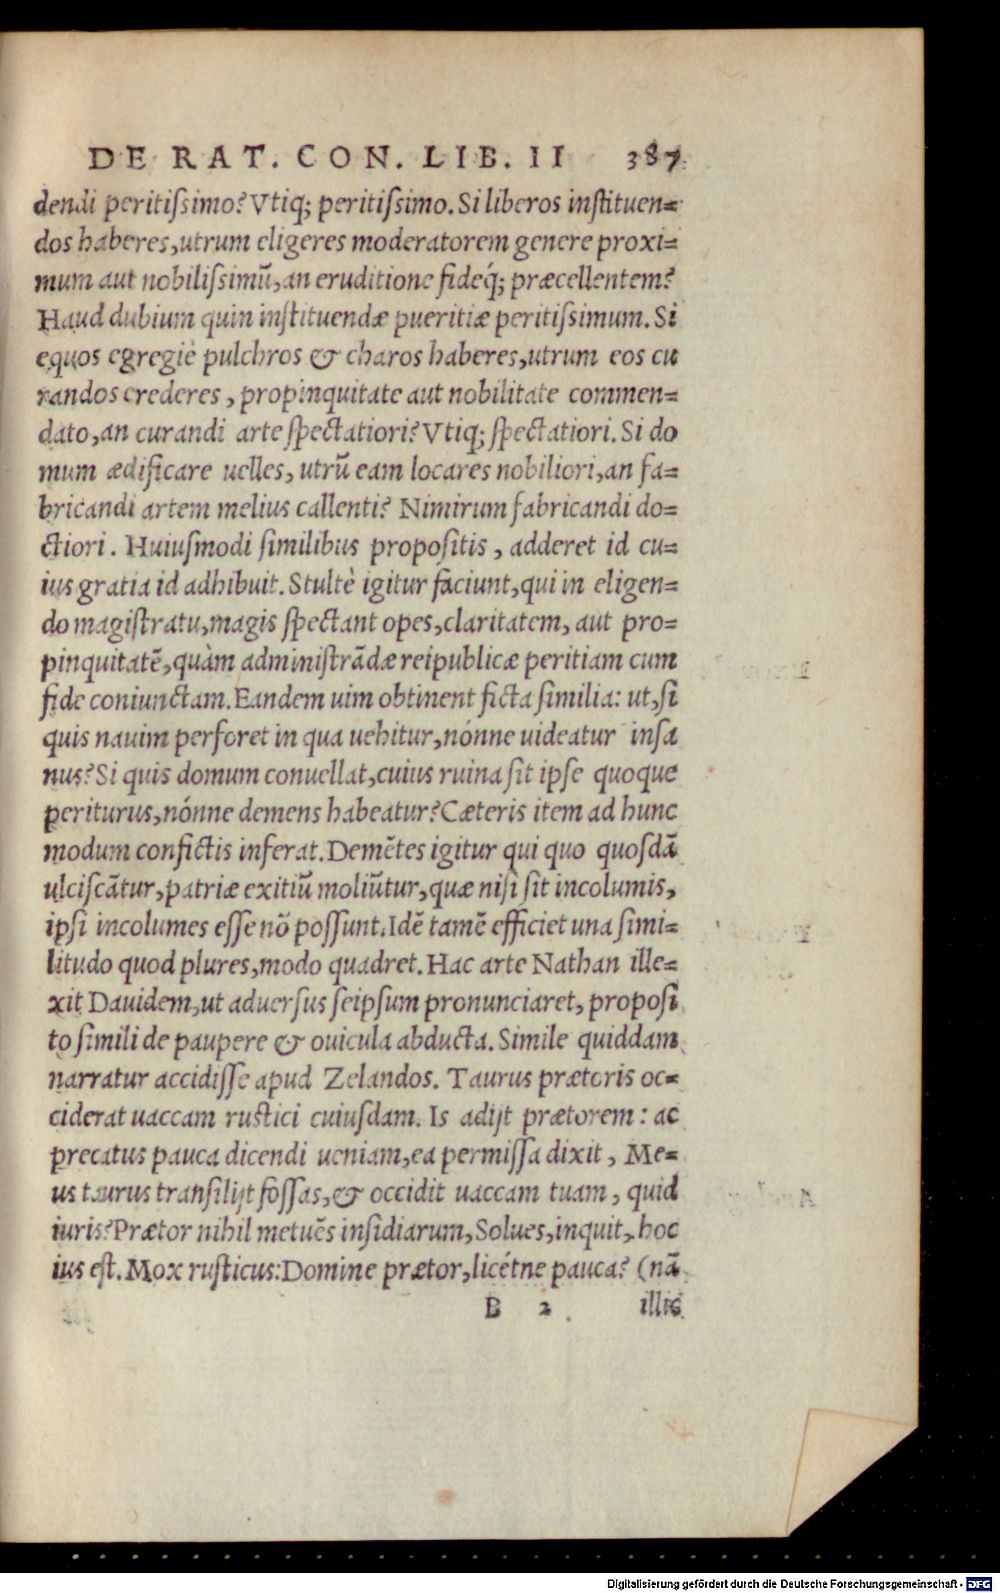 DE RAT. CON. LIB. II 387
dendi peritißimo? Vtiq; peritißimo. Si liberos instituen=
dos haberes, utrum eligeres moderatorem genere proxi=
mum aut nobilißimũ, an eruditione fideq́; præcellentem?
Haud dubium quin instituendæ pueritiæ peritißimum. Si
equos egregiè pulchros & charos haberes, utrum eos cu
randos crederes, propinquitate aut nobilitate commen=
dato, an curandi arte spectatiori? Vtiq; spectatiori. Si do
mum ædificare uelles, utrũ eam locares nobiliori, an fa=
bricandi artem melius callenti? Nimirum fabricandi do=
ctiori. Huiusmodi similibus propositis, adderet id cu=
ius gratia id adhibuit. Stultè igitur faciunt, qui in eligen=
do magistratu, magis spectant opes, claritatem, aut pro=
pinquitatẽ, quàm administrãdæ reipublicæ peritiam cum
fide coniunctam. Eandem uim obtinent ficta similia: ut, si
quis nauim perforet in qua uehitur, nónne uideatur insa
nus? Si quis domum conuellat, cuius ruina sit ipse quoque
periturus, nónne demens habeatur? Cæteris item ad hunc
modum confictis inferat. Demẽtes igitur qui quo quosdã
ulciscãtur, patriæ exitiũ moliũtur, quæ nisi sit incolumis,
ipsi incolumes esse nõ possunt. Idẽ tamẽ efficiet una simi=
litudo quod plures, modo quadret. Hac arte Nathan ille=
xit Dauidem, ut aduersus seipsum pronunciaret, proposi
to simili de paupere & ouicula abducta. Simile quiddam
narratur accidisse apud Zelandos. Taurus prætoris oc=
ciderat uaccam rustici cuiusdam. Is adijt prætorem: ac
precatus pauca dicendi ueniam, ea permissa dixit, Me=
us taurus transilijt fossas, & occidit uaccam tuam, quid
iuris? Prætor nihil metuẽs insidiarum, Solues, inquit, hoc
ius est. Mox rusticus: Domine prætor, licétne pauca? (nã
B 2 illis
Digitalisierung gefördert durch die Deutsche Forschungsgemeinschaft - DFG